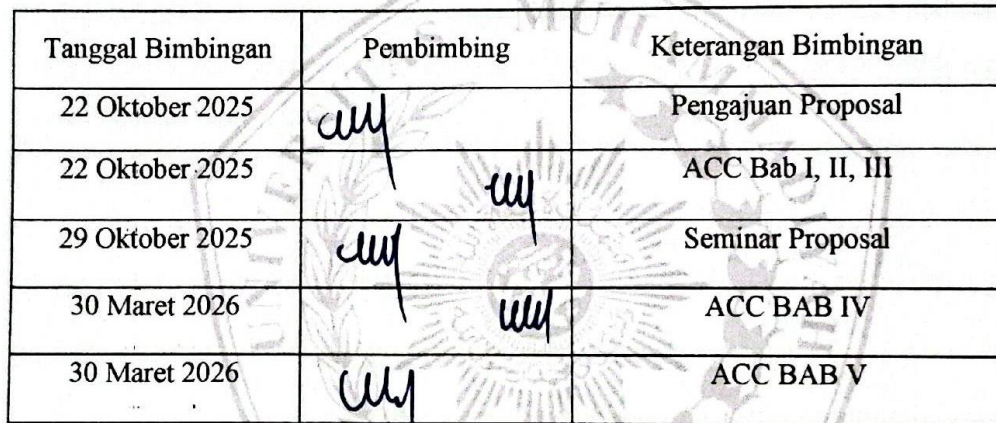 Tanggal Bimbingan Pembimbing Keterangan Bimbingan
22 Oktober 2025 Pengajuan Proposal
22 Oktober 2025 ACC Bab I, II, III
29 Oktober 2025 Seminar Proposal
30 Maret 2026 ACC BAB IV
30 Maret 2026 ACC BAB V